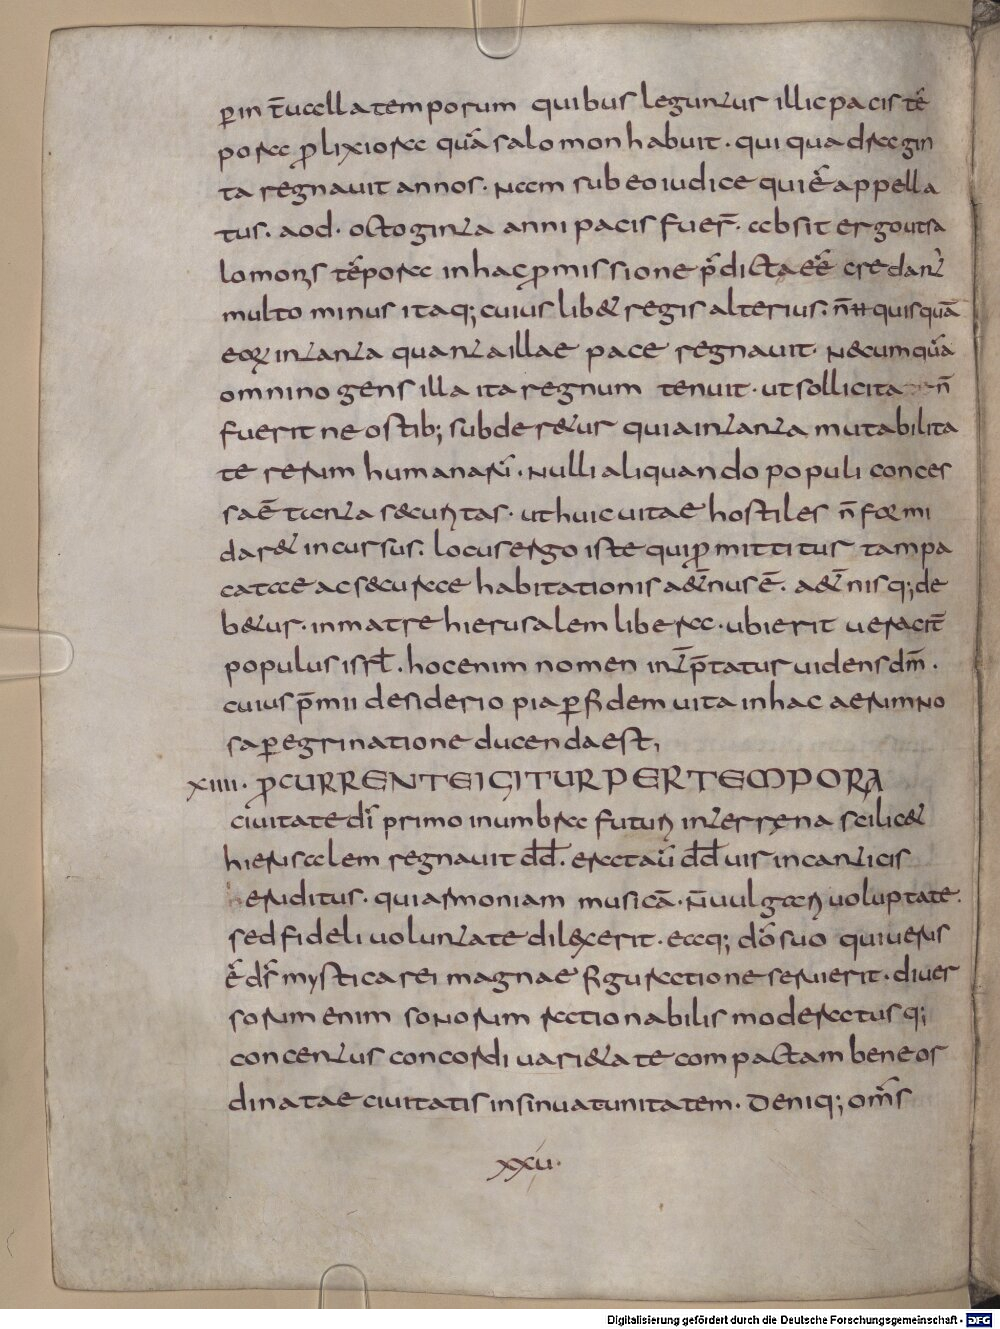 ꝑ in t̄ucella temporum quibus leguntur illic pacis tē
pore ꝓlixiore quā salomon habuit · qui quadragin
ta regnauit annos · Nam sub eo iudice qui ē appella
tus · aod · octoginta anni pacis fuer̄ · absit ergo ut sa
lomonis tēpore in hac ꝓmissione p̄dicta eē credant
multo minus itaq; cuius lib& regis alterius · n̄ quisquā
eoꝝ in tanta quanta illae pace regnauit · Nec umquā
omnino gens illa ita regnum tenuit · ut sollicita n̄
fuerit ne ostib; subder&ur quia in tanta mutabilita
te rerum humanarū · Nulli aliquando populi conces
sa ē tanta securitas · ut huic uitae hostiles n̄ formi
dar& incursus · locus ergo iste qui ꝓmittitur tam pa
catae ac securae habitationis aet̄nus ē · aet̄nisq; de
b&ur · in matre hierusalem libera · ubi erit ueracit̄
populus isrł · hoc enim nomen int̄p̄tatur uidens dm̄ ·
cuius p̄mii desiderio pia ꝑ fidem uita in hac aerumno
sa ꝑegrinatione ducenda est,
XIIII · ꝓCURRENTE IGITUR PER TEMPORA
ciuitate dī primo in umbra futuri in terrena scilic&
hierusalem regnauit dd̄ · erat aū dd̄ uir in canticis
eruditus · qui armoniam musicā · n̄ uulgari uoluptate ·
sed fideli uoluntate dilexerit · eaq; dō suo qui uerus
ē ds̄ mystica rei magnae figuratione seruierit · diuer
sorum enim sonorum rationabilis moderatusq;
concentus concordi uari&ate compactam bene or
dinatae ciuitatis insinuat unitatem · Deniq; om̄s
xxu ·
Digitalisierung gefördert durch die Deutsche Forschungsgemeinschaft - DFG